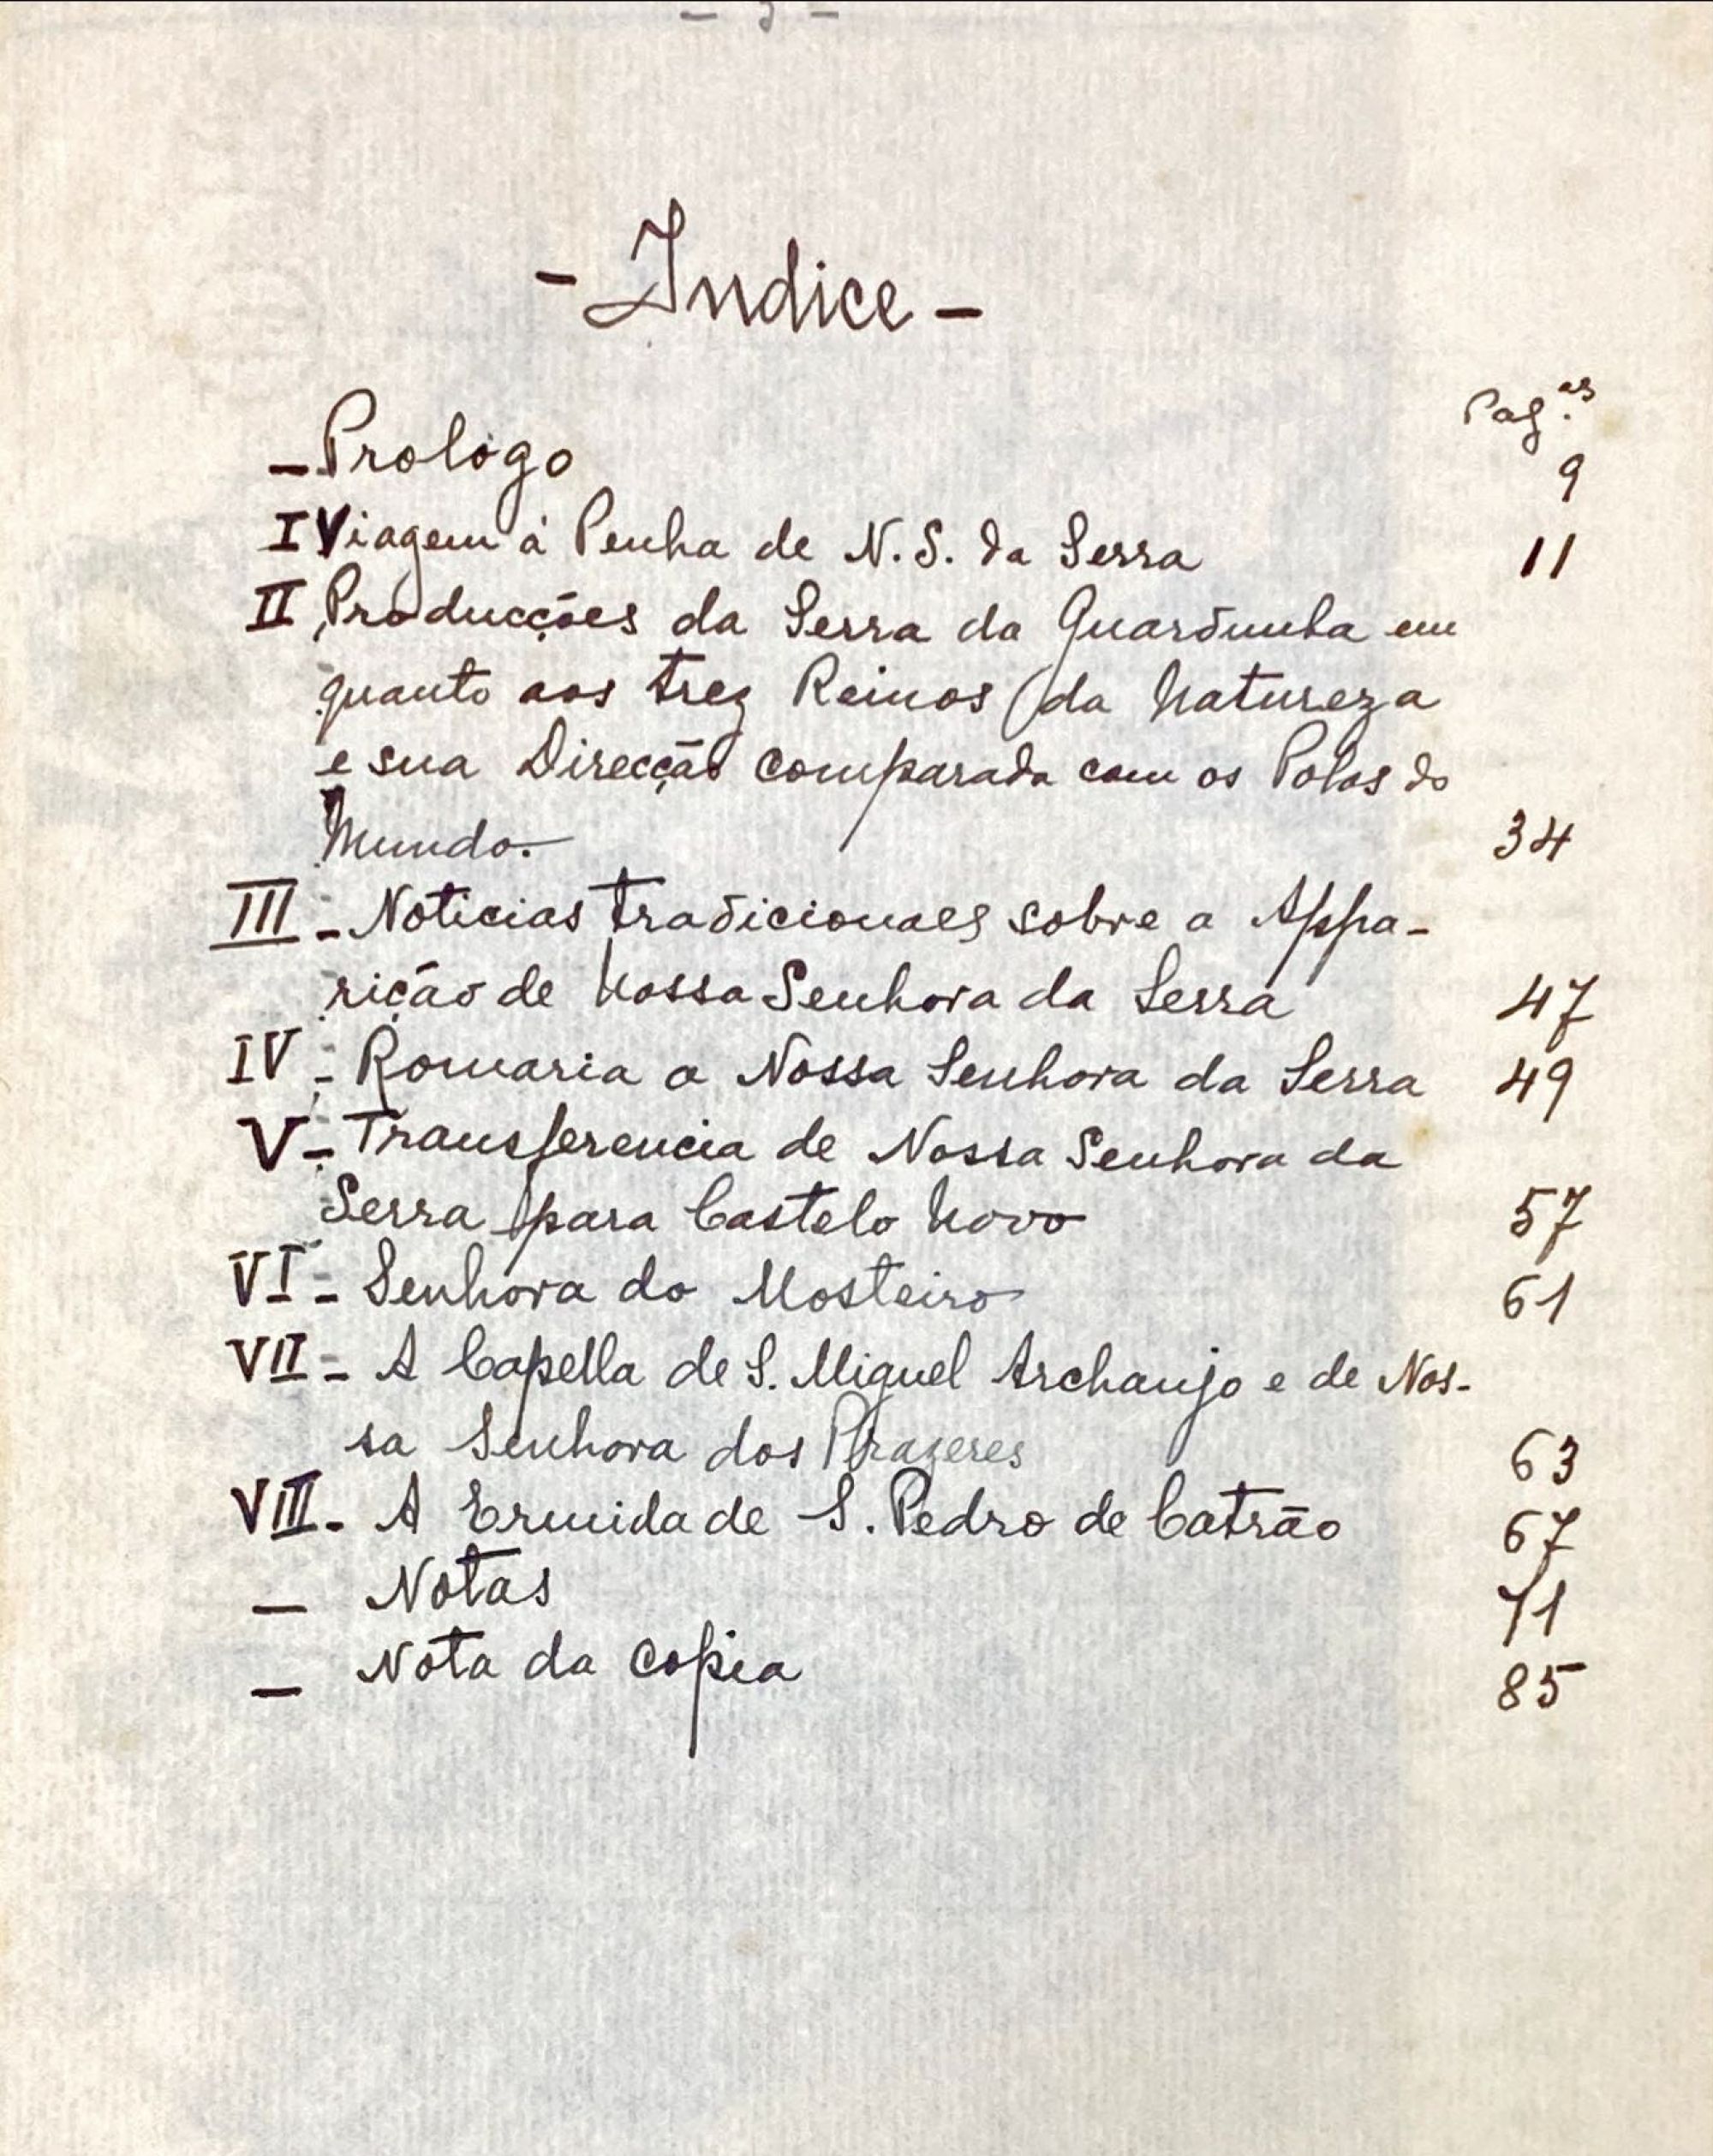 - Indice -
Pag.as
- Prologo 9
I Viagem á Penha de N. S. da Serra 11
II Producções da Serra da Guardunha em
quanto aos trez Reinos da Natureza
e sua Direcção comparada com os Polos do
Mundo. 34
III - Noticias tradicionaes sobre a Appa-
rição de Nossa Senhora da Serra 47
IV - Romaria a Nossa Senhora da Serra 49
V - Transferencia de Nossa Senhora da
Serra para Castelo Novo 57
VI - Senhora do Mosteiro 61
VII - A Capella de S. Miguel Archanjo e de Nos-
sa Senhora dos Prazeres 63
VIII - A Ermida de S. Pedro de Catrão 67
- Notas 71
- Nota da copia 85